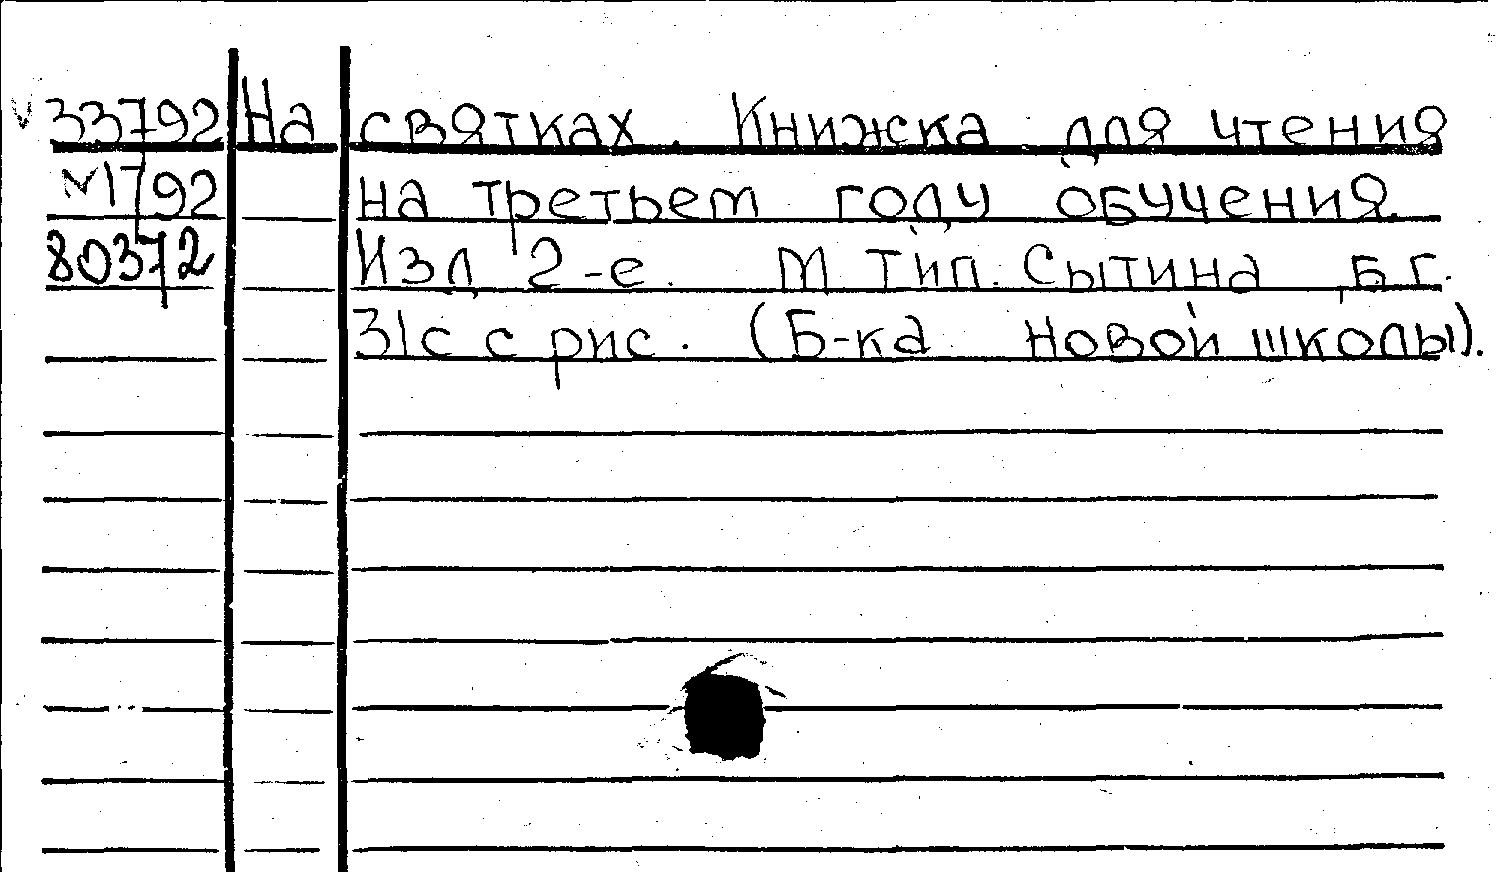 33792 На святках. Книжка для чтения
М1792 на третьем году обучения.
80372 Изд 2-е. М Тип. Сытина, б.г.
31с с рис. (Б-ка новой школы).